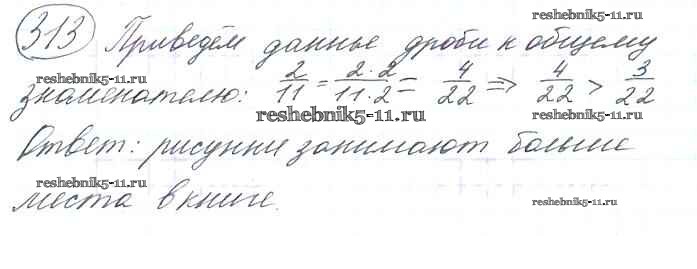 reshebnik5-11.ru
313 Приведём данные дроби к общему
reshebnik5-11.ru reshebnik5-11.ru
знаменателю: 2/11 = 2·2/11·2 = 4/22 ⇒ 4/22 > 3/22
reshebnik5-11.ru reshebnik5-11.ru
Ответ: рисунки занимают больше
reshebnik5-11.ru reshebnik5-11.ru
места в книге.
reshebnik5-11.ru